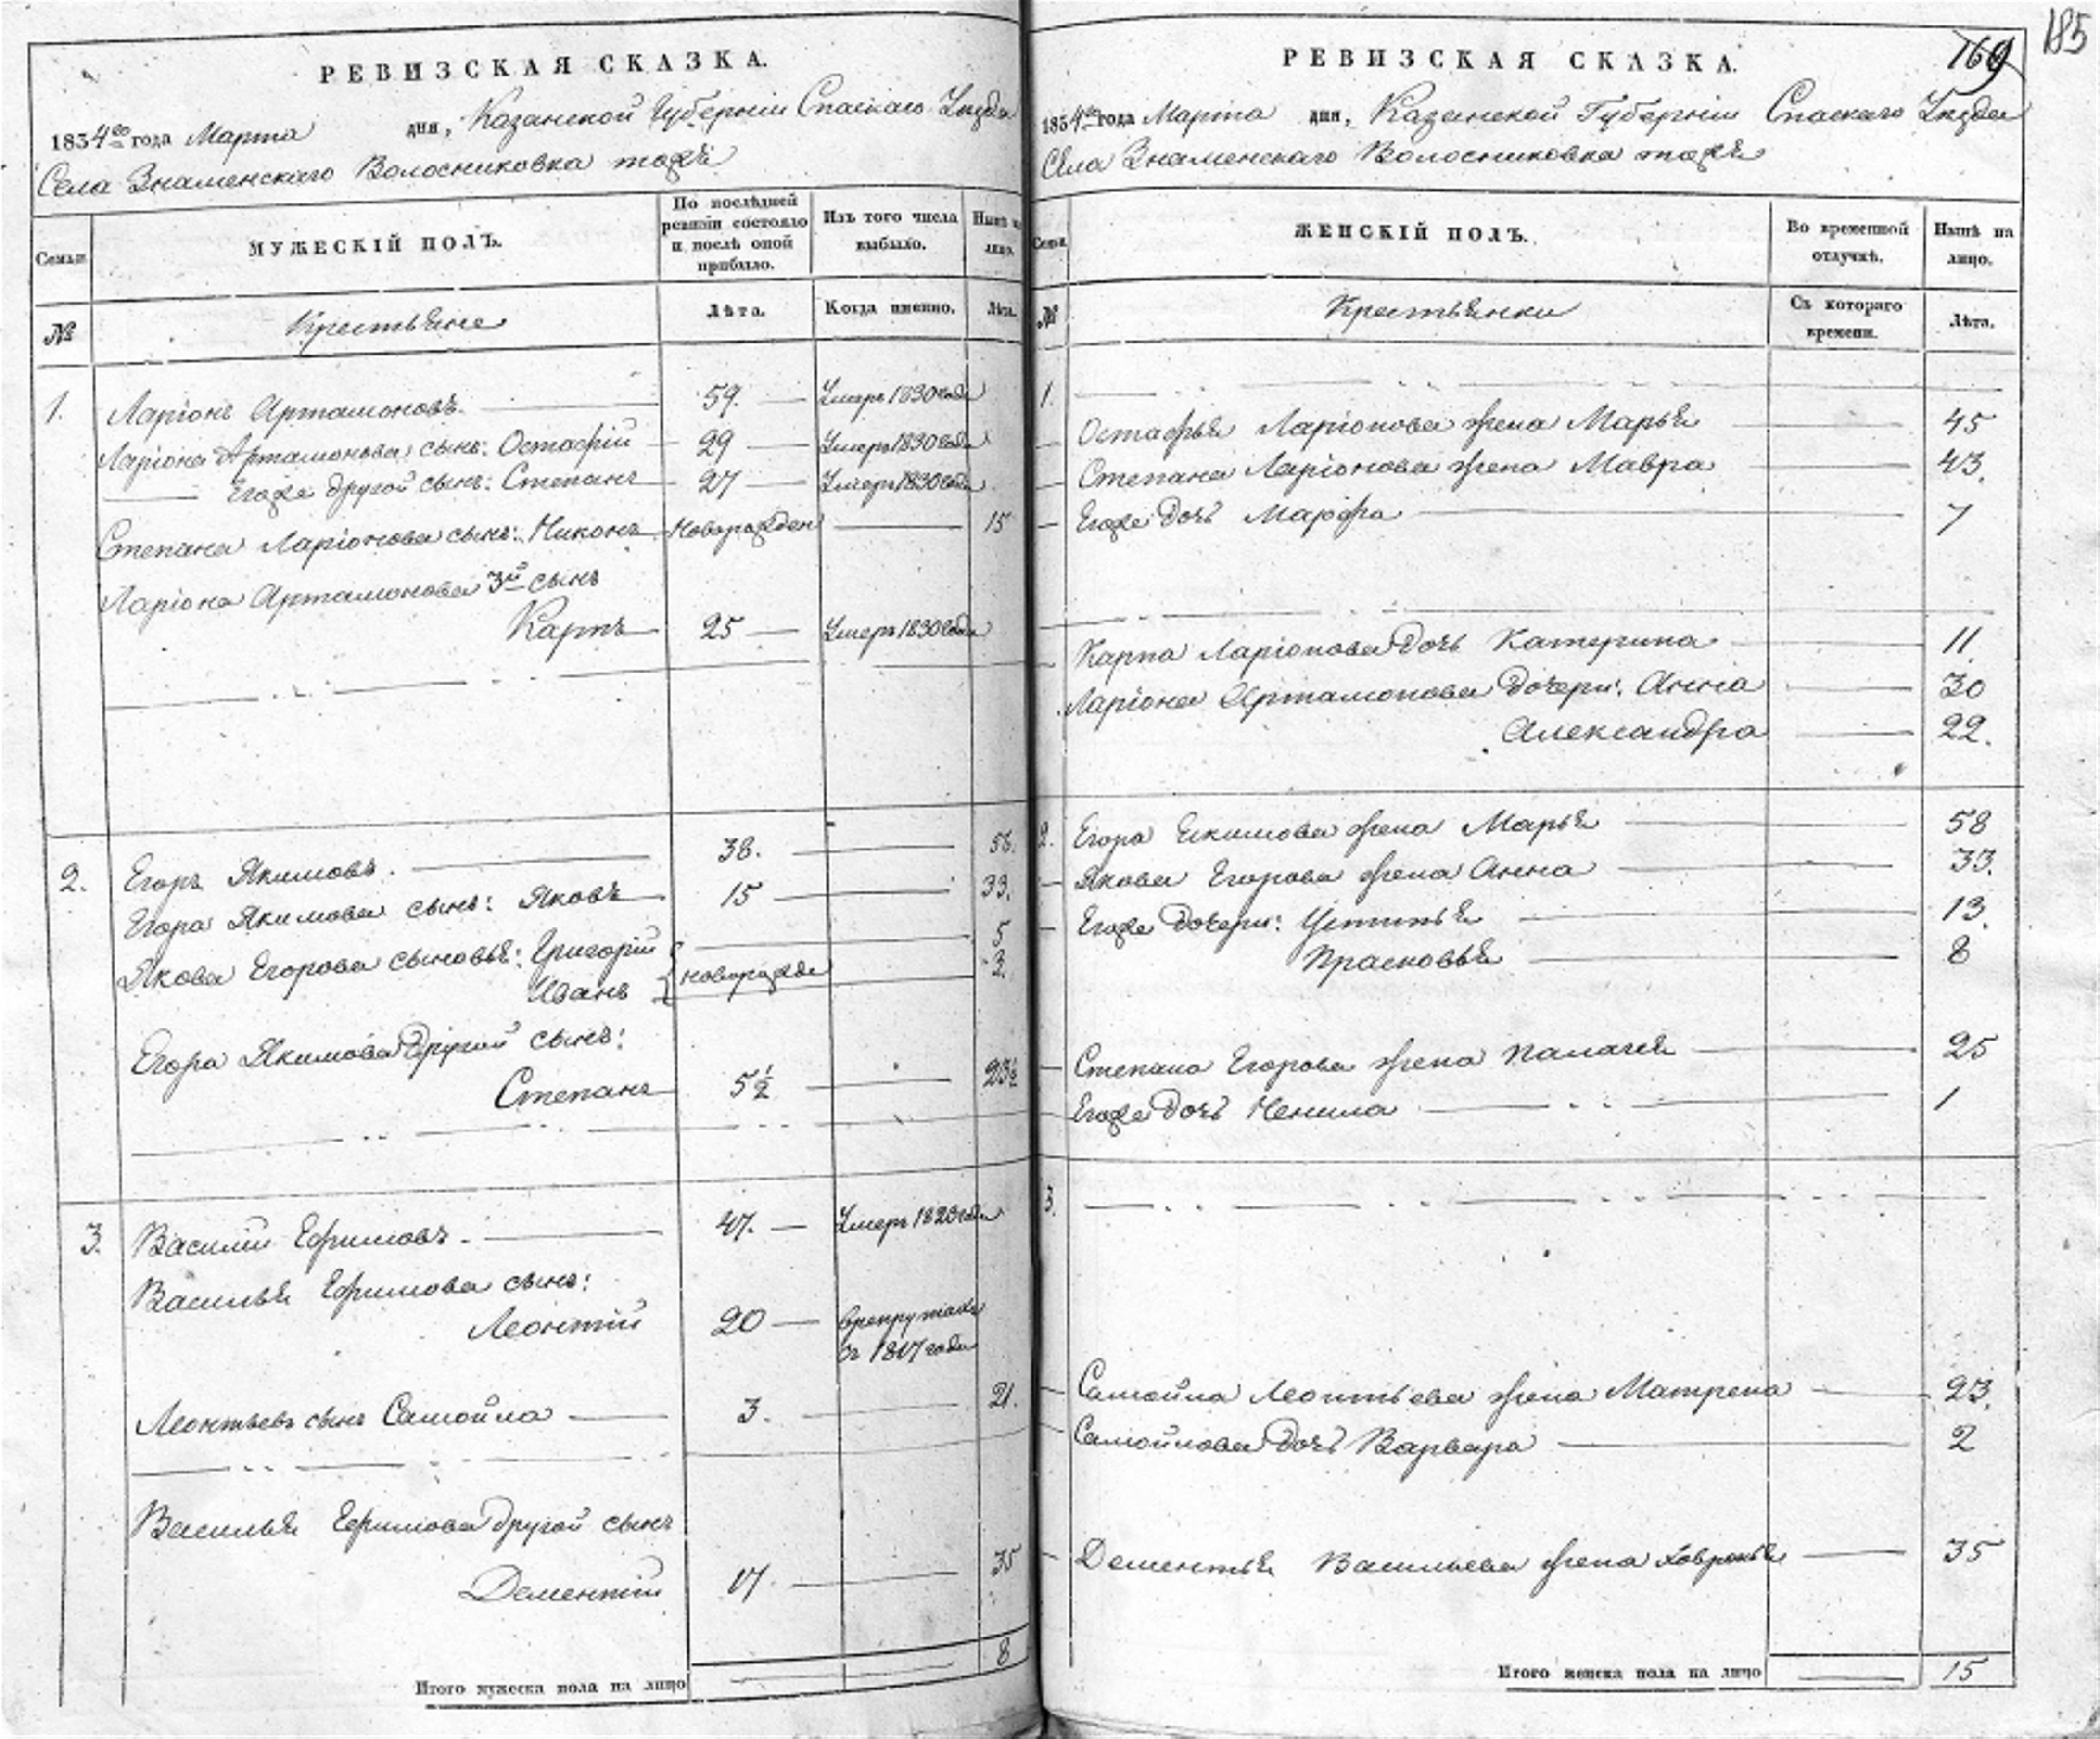 185
169
РЕВИЗСКАЯ СКАЗКА.
1834го года Марта дня, Казанской Губерніи Спаскаго Уезда
Села Знаменскаго Волосниковка тожъ
Семьи.
МУЖЕСКІЙ ПОЛЪ.
По послѣдней ревизіи состояло и послѣ оной прибыло.
Изъ того числа выбыло.
Нынѣ на лицо.
№
Крестьяне
Лѣта.
Когда именно.
Лѣта.
1. Ларіонъ Артамоновъ. 59. Умеръ 1830 года
Ларіона Артамонова сынъ: Остафій 29 Умеръ 1830 года
Егоже другой сынъ: Степанъ 27 Умеръ 1830 года
Степана Ларіонова сынъ: Никонъ Новорожден 15
Ларіона Артамонова 3й сынъ
Карпъ 25 Умеръ 1830 года
2. Егоръ Якимовъ. 38. 56.
Егора Якимова сынъ: Яковъ 15 33.
Якова Егорова сыновья: Григорій 5
Иванъ новорожде 3.
Егора Якимова другой сынъ:
Степанъ 5½ 23½
3. Василий Ефимовъ. 47. Умеръ 1820 года
Василья Ефимова сынъ:
Леонтій 20 врекрутахъ
съ 1817 года
Леонтьевъ сынъ Самойла 3. 21.
Василья Ефимова другой сынъ
Дементій 17. 35
Итого мужеска пола на лицо 8
РЕВИЗСКАЯ СКАЗКА.
1834го года Марта дня, Казанской Губерніи Спаскаго Уезда
Села Знаменскаго Волосниковка тожъ
Семьи.
ЖЕНСКІЙ ПОЛЪ.
Во временной отлучкѣ.
Нынѣ на лицо.
№
Крестьянки
Съ котораго времени.
Лѣта.
1.
Остафья Ларіонова жена Марья 45
Степана Ларіонова жена Мавра 43.
Егоже дочь Марфа 7
Карпа Ларіонова дочь Катерина 11
Ларіона Артамонова дочери: Анна 30
Александра 22.
2. Егора Екимова жена Марья 58
Якова Егорова жена Анна 33.
Егоже дочери: Устинья 13
Прасковья 8
Степана Егорова жена Палагея 25
Егоже дочь Ненила 1
3.
Самойла Леонтьева жена Матрена 23.
Самойлова дочь Варвара 2
Дементья Васильева жена Хавронья 35
Итого женска пола на лицо 15